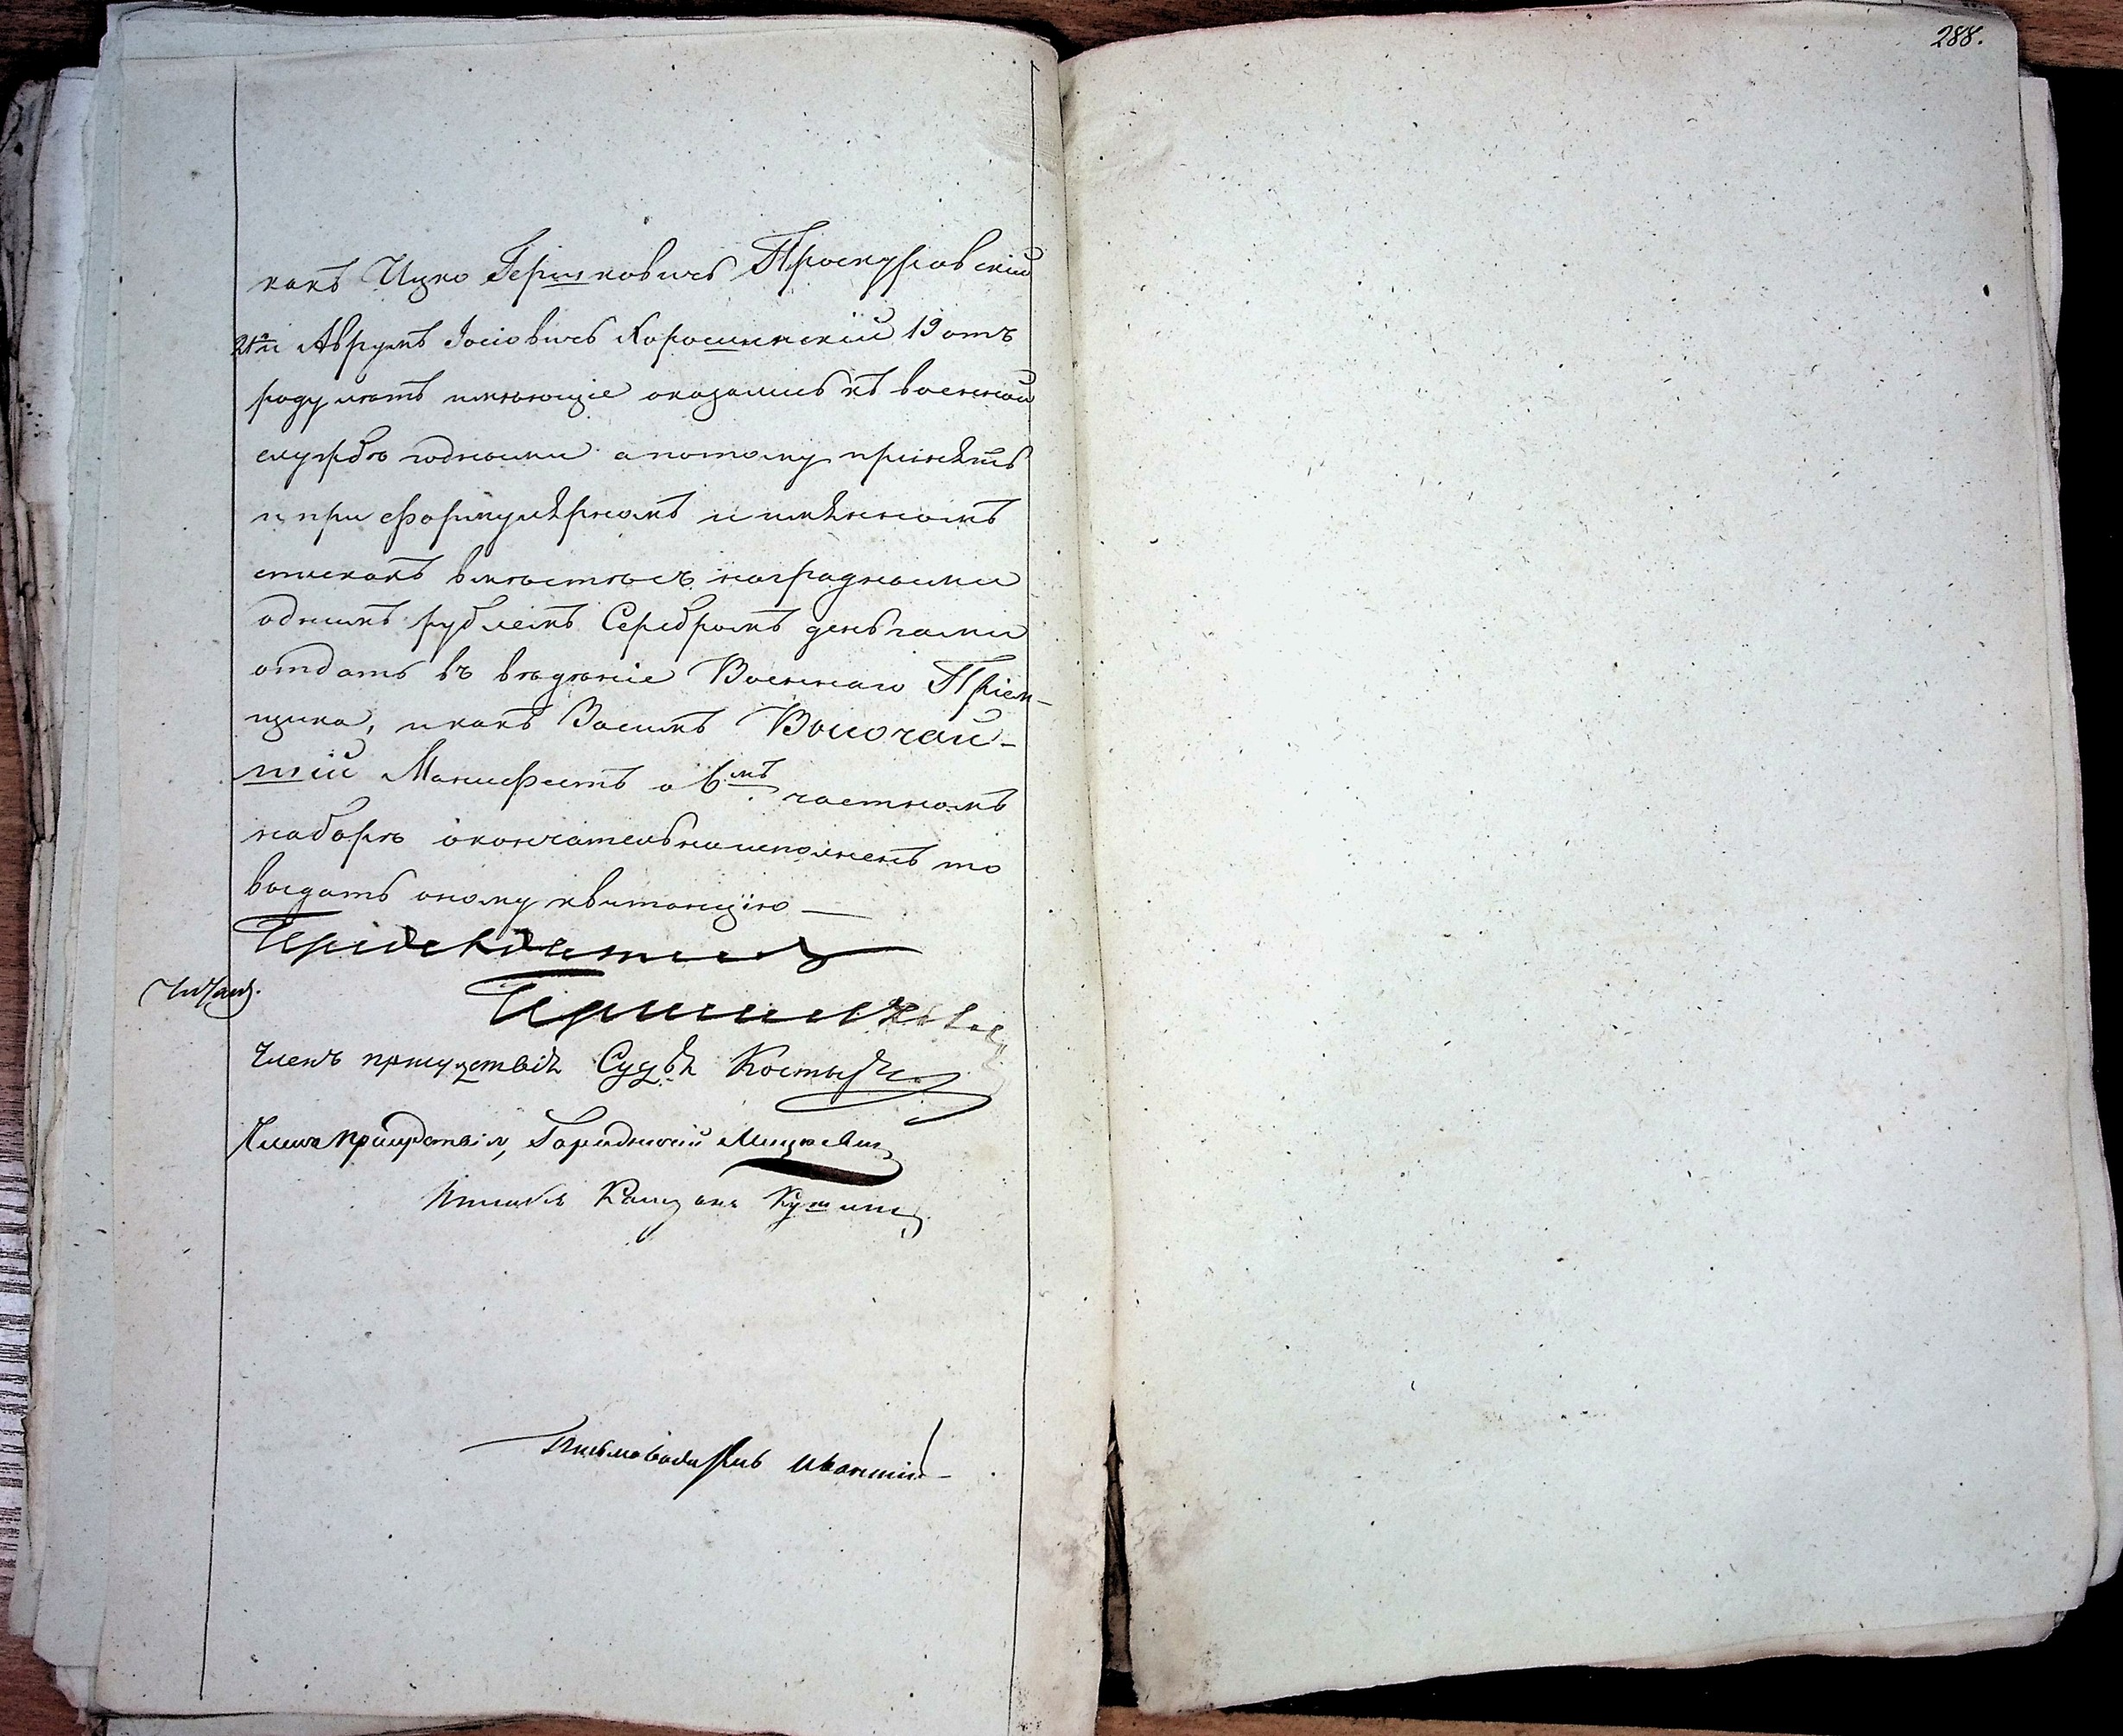 288.
какъ Ицко Гершковичъ Проскуровскій
21ти Аврумъ Іосіовичъ Хорошинскій 19 отъ
роду лѣтъ имѣющіе оказались къ военной
службѣ годными а потому принять
и при формулярномъ и имянномъ
спискахъ вмѣстѣ съ наградными
однимъ рублемъ Серебромъ деньгами
отдать въ вѣденіе Военнаго Пріем-
щика, и какъ Засимъ Высочай-
шій Манифестъ о 6мъ частномъ
наборѣ окончательно исполненъ то
выдать оному квитанцію —
Предводитель
Членъ присутствія Судья
Членъ присутствія, Городничій
Капитанъ
Письмоводитель